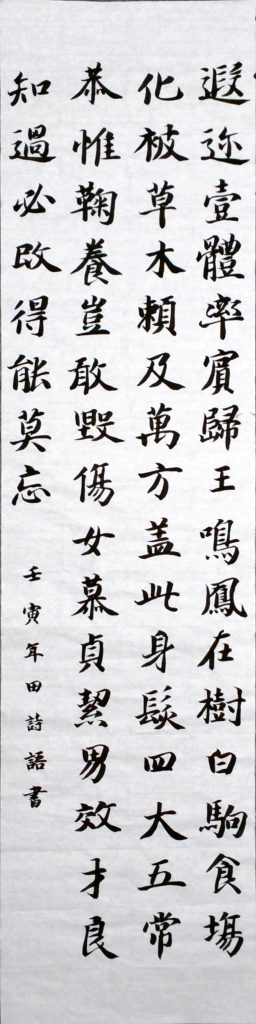 遐迩壹體率賓歸王鳴鳳在樹白駒食場
化被草木賴及萬方盖此身髮四大五常
恭惟鞠養豈敢毁傷女慕貞絜男效才良
知過必改得能莫忘
壬寅年田詩語書